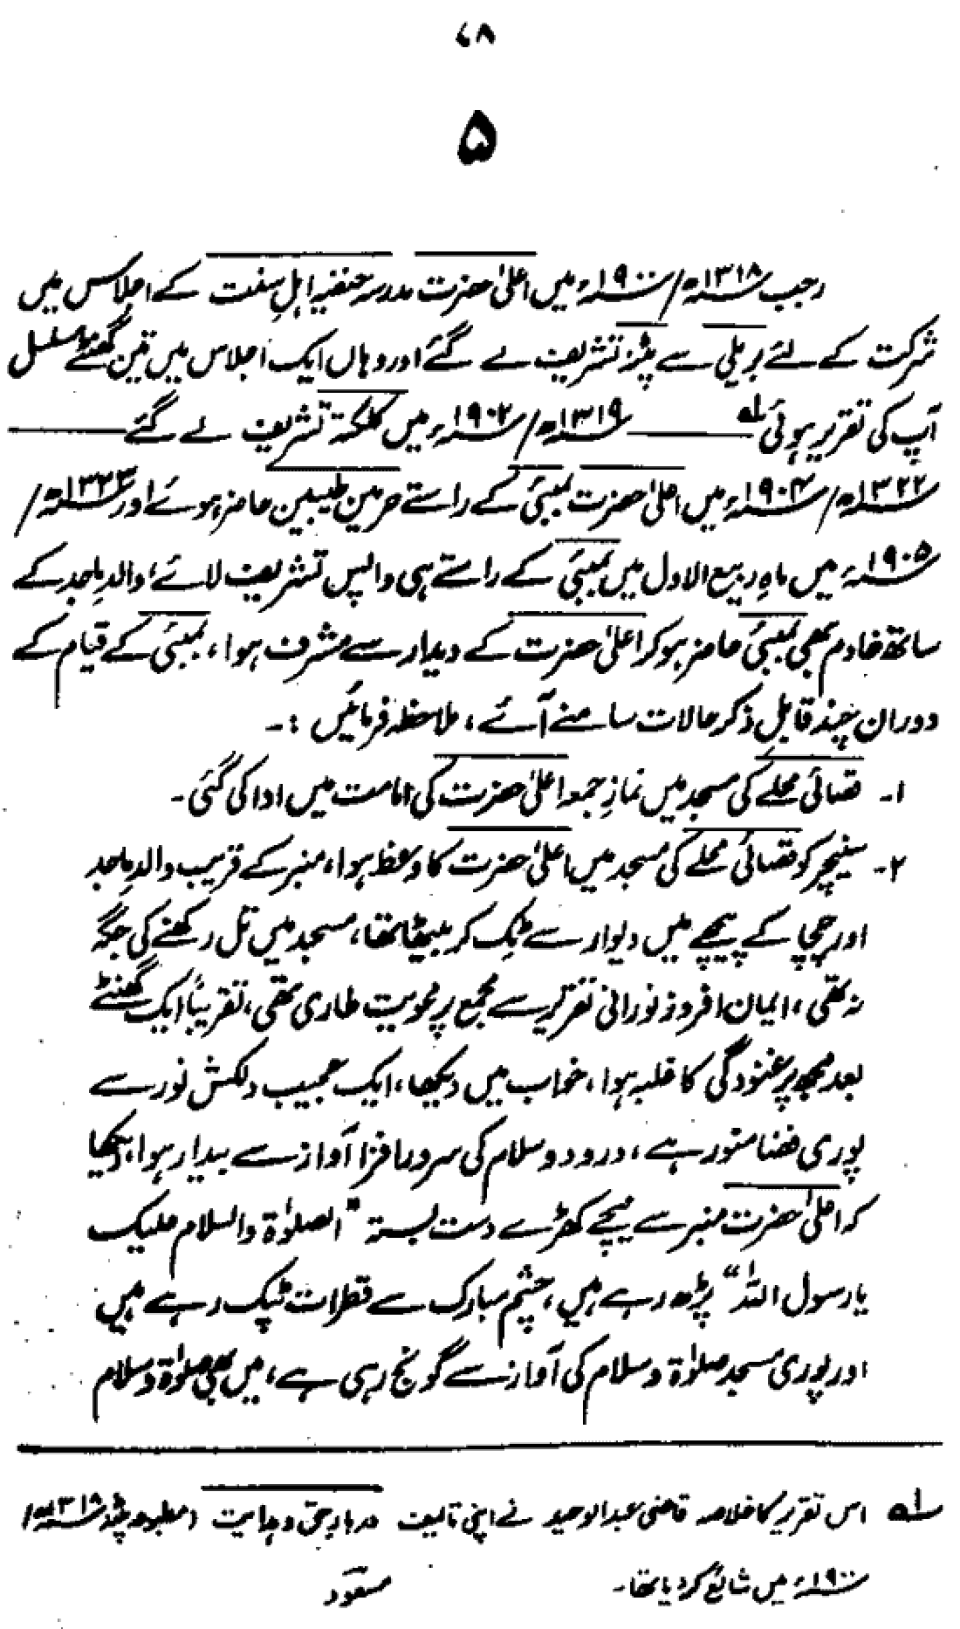 ۷۸
۵
رجب ۱۳۱۸ھ/۱۹۰۰ء میں اعلیٰ حضرت مدرسہ حنفیہ اہل سنت کے اجلاس میں
شرکت کے لئے بریلی سے پٹنہ تشریف لے گئے اور وہاں ایک اجلاس میں تین گھنٹے مسلسل
آپ کی تقریر ہوئی ؎۱ ــــــ ۱۳۱۹ھ/۱۹۰۲ء میں کلکتہ تشریف لے گئے ــــــ
۱۳۲۲ھ/۱۹۰۴ء میں اعلیٰ حضرت بمبئی کے راستے حرمین طیبین حاضر ہوئے اور ۱۳۲۳ھ/
۱۹۰۵ء میں ماہ ربیع الاول میں بمبئی کے راستے ہی واپس تشریف لائے، والد ماجد کے
ساتھ خادم بھی بمبئی حاضر ہو کر اعلیٰ حضرت کے دیدار سے مشرف ہوا، بمبئی کے قیام کے
دوران چند قابلِ ذکر حالات سامنے آئے، ملاحظہ فرمائیں :۔
۱۔ قصائی محلے کی مسجد میں نمازِ جمعہ اعلیٰ حضرت کی امامت میں ادا کی گئی۔
۲۔ سنیچر کو قصائی محلے کی مسجد میں اعلیٰ حضرت کا وعظ ہوا، منبر کے قریب والد ماجد
اور چچا کے پیچھے میں دیوار سے ٹیک کر بیٹھا تھا، مسجد میں تل رکھنے کی جگہ
نہ تھی، ایمان افروز نورانی تقریر سے مجمع پر محویت طاری تھی، تقریباً ایک گھنٹے
بعد مجھ پر غنودگی کا غلبہ ہوا، خواب میں دیکھا، ایک عجیب دلکش نور سے
پوری فضا منور ہے، درود و سلام کی سرور افزا آواز سے بیدار ہوا، دیکھا
کہ اعلیٰ حضرت منبر سے نیچے کھڑے دست بستہ "الصلوٰۃ والسلام علیک
یا رسول اللہ" پڑھ رہے ہیں، چشمِ مبارک سے قطرات ٹپک رہے ہیں
اور پوری مسجد صلوٰۃ و سلام کی آواز سے گونج رہی ہے، میں بھی صلوٰۃ و سلام
؎۱ اس تقریر کا خلاصہ قاضی عبدالوحید نے اپنی تالیف دربار حق و ہدایت (مطبوعہ پٹنہ ۱۳۱۸ھ/
۱۹۰۰ء میں شائع کر دیا تھا۔ مسعود